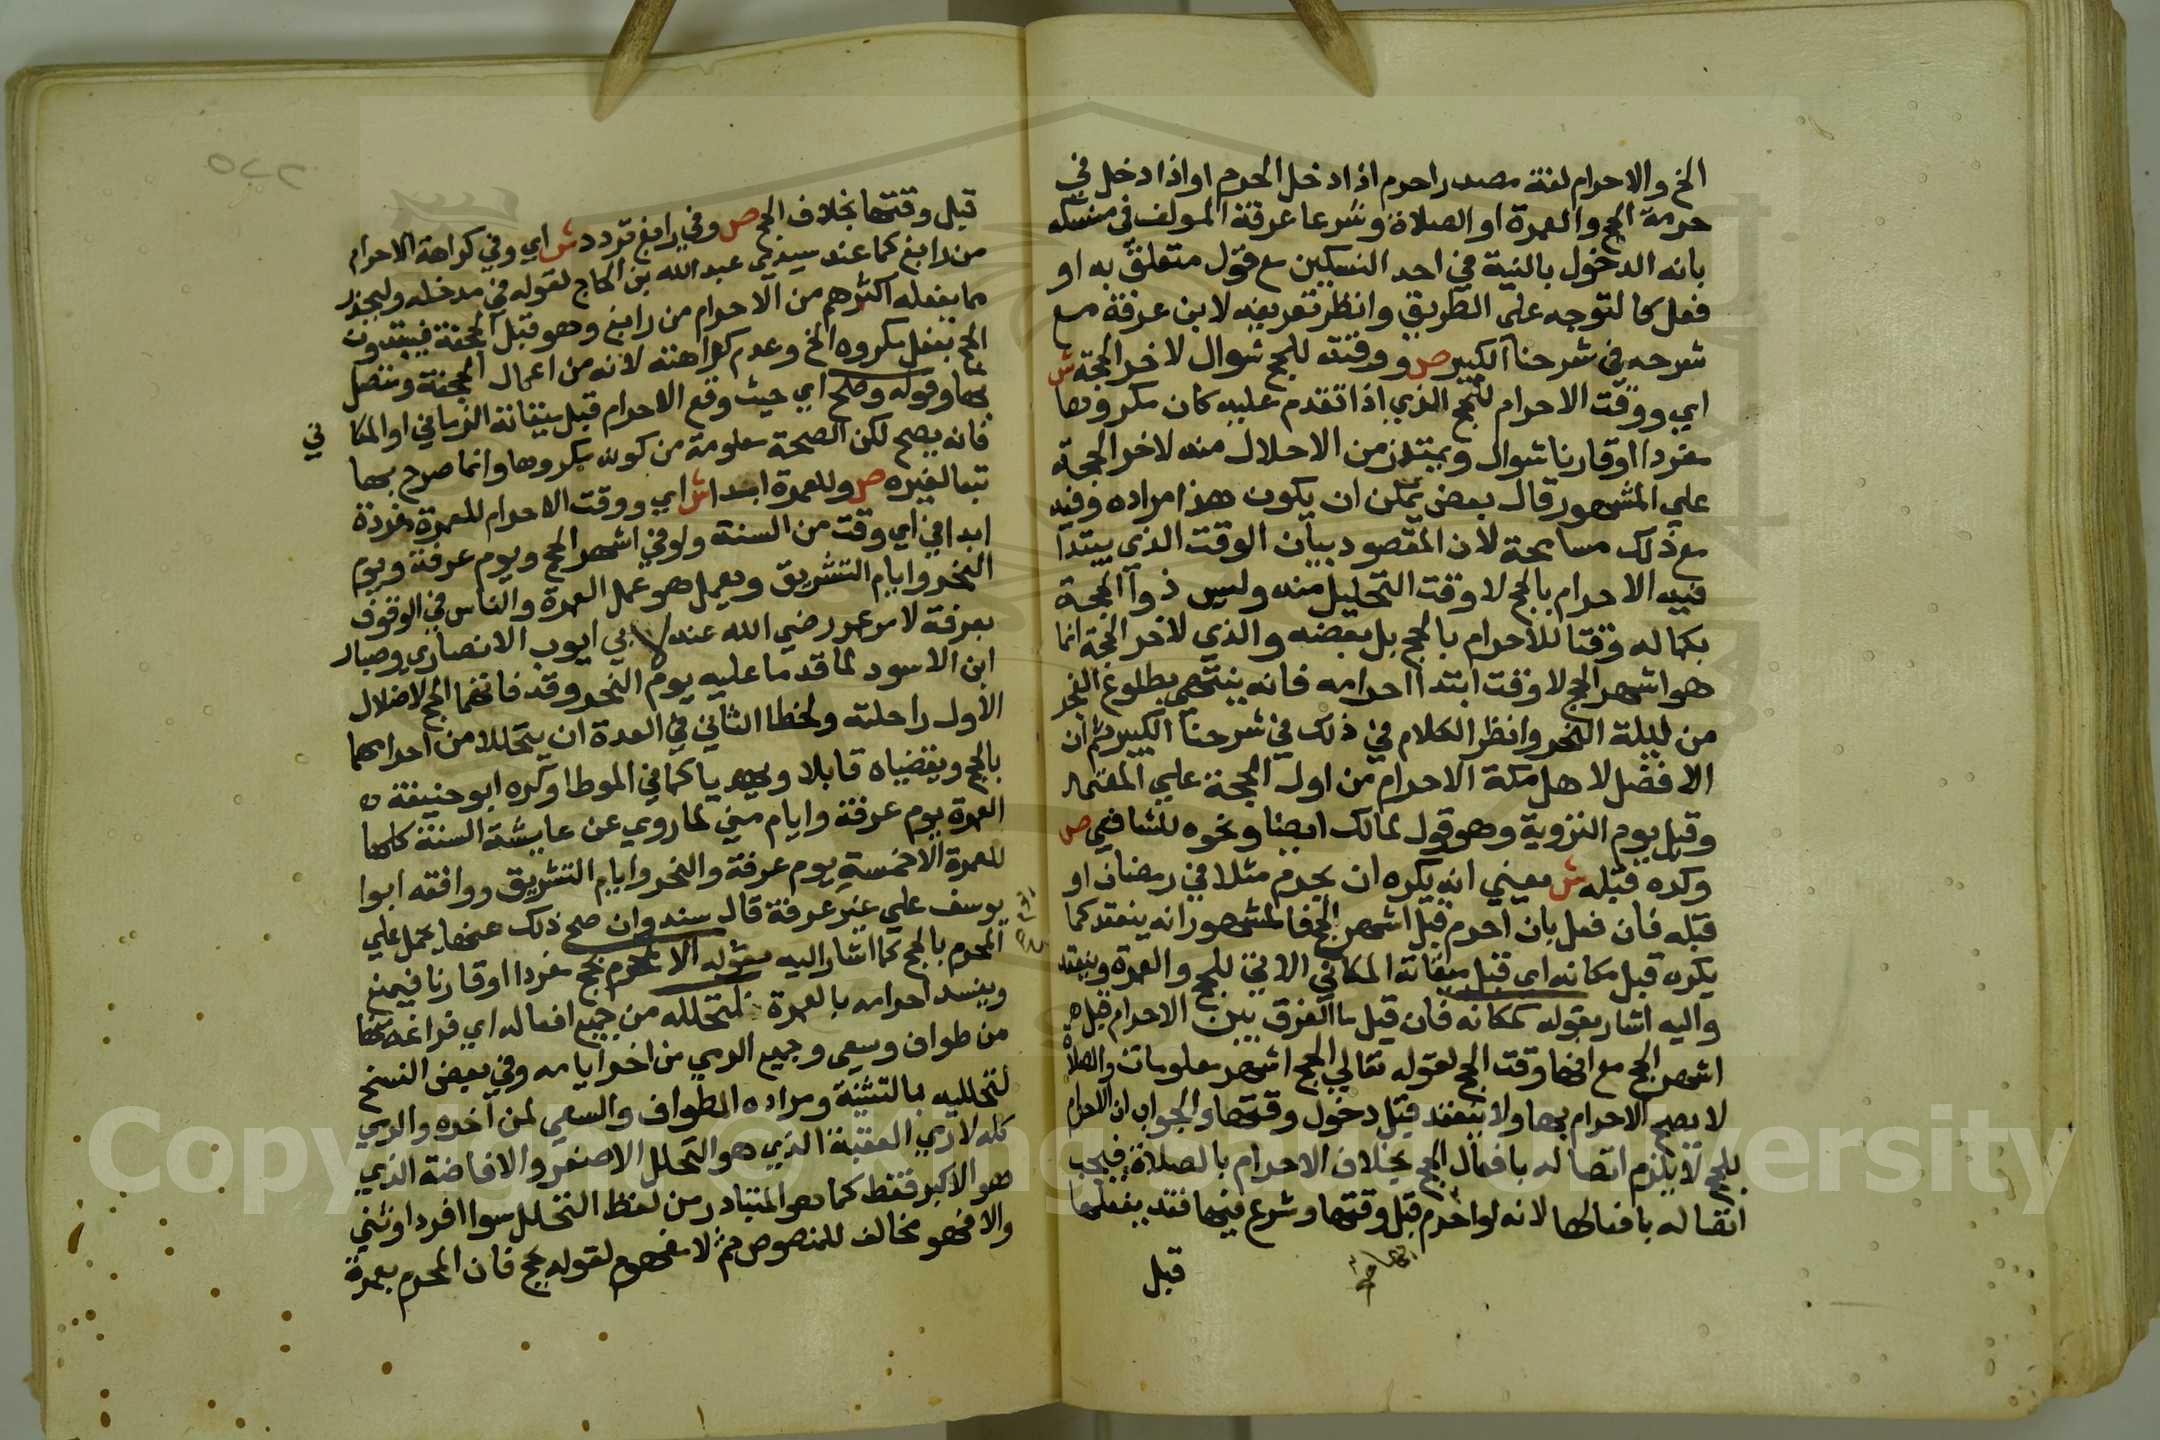 الخ والاحرام لغة مصدر احرم اذا دخل الحرم او اذا دخل في
حرمة الحج والعمرة او الصلاة وشرعا عرفه المولف في منسكه
بانه الدخول بالنية في احد النسكين مع قول متعلق به او
فعل كالتوجه علي الطريق وانظر تعريفه لابن عرفة مع
شرحه في شرحنا الكبير ص ووقته للحج شوال لاخر الحجة ش
اي ووقت الاحرام للحج الذي اذا تقدم عليه كان مكروها
مفردا او قارنا شوال ويمتد زمن الاحلال منه لاخر الحجة
علي المشهور قال بعض يمكن ان يكون هذا مراده وفيه
مع ذلك مسامحة لان المقصود بيان الوقت الذي يبتدا
فيه الاحرام بالحج لا وقت التحليل منه وليس ذوا الحجة
بكماله وقتا للاحرام بالحج بل بعضه والذي لاخر الحجة انما
هو اشهر الحج لا وقت ابتدا احرامه فانه ينتهي بطلوع الفجر
من ليلة النحر وانظر الكلام في ذلك في شرحنا الكبير ثم ان
الافضل لاهل مكة الاحرام من اول الحجة علي المعتمد
وقبل يوم التروية وهو قول لمالك ايضا ونحوه للشافعي ص
وكره قبله ش يعني انه يكره ان يحرم مثلا في رمضان او
قبله فان فعل بان احرم قبل اشهر الحج فالمشهور انه ينعقد كما
يكره قبل مكانه اي قبل ميقاته المكاني الاتي للحج والعمرة وينعقد
واليه اشار بقوله كمكانه فان قيل ما الفرق بين الاحرام قبل
اشهر الحج مع انها وقت الحج لقوله تعالي الحج اشهر معلومات والصلاة
لا يصح الاحرام بها ولا ينعقد قبل دخول وقتها والجواب ان الاحرام
بالحج لا يلزم اتصاله بافعال الحج بخلاف الاحرام بالصلاة فيجب
اتصاله بافعالها لانه لو احرم قبل وقتها وشرع فيها فقد يفعلها
قبل
قبل وقتها بخلاف الحج ص وفي رابغ تردد ش اي وفي كراهة الاحرام
من رابغ كما عند سيدي عبد الله بن الحاج لقوله في مدخله وليحذر
مما يفعله اكثرهم من الاحرام من رابغ وهو قبل الجحفة فيبتدون
الحج بفعل مكروه الخ وعدم كراهته لانه من اعمال الجحفة ومتصل
بها وقوله وصح اي حيث وقع الاحرام قبل ميقاته الزماني او المكا
ني
فانه يصح لكن الصحة معلومة من كونه مكروها وانما صرح بها
تبعا لغيره ص وللعمرة ابدا ش اي ووقت الاحرام للعمرة مفردة
ابدا في اي وقت من السنة ولو في اشهر الحج ويوم عرفة ويوم
النحر وايام التشريق ويعمل هو عمل العمرة والناس في الوقوف
بعرفة لامر عمر رضي الله عنه لابي ايوب الانصاري وهبار
ابن الاسود لما قدما عليه يوم النحر وقد فاتهما الحج لاضلال
الاول راحلته ولخطا الثاني في العدة ان يتحللا من احرامهما
بالحج ويقضياه قابلا ويهديا كما في الموطا وكره ابو حنيفة
العمرة يوم عرفة وايام مني لما روي عن عايشة السنة كلها
للعمرة الا خمسة يوم عرفة والنحر وايام التشريق ووافقه ابوا
يوسف علي غير عرفة قال سند وان صح ذلك عنها يحمل علي
المحرم بالحج كما اشار اليه بقوله الا لمحرم بحج مفردا او قارنا فيمنع
ويفسد احرامه بالعمرة لتحلله من جميع افعاله اي فراغه منها
من طواف وسعي وجميع الرمي من اخر ايامه وفي بعض النسخ
لتحلليه بالتثنية ومراده الطواف والسعي لمن اخره والرمي
كله لا رمي العقبة الذي هو التحلل الاصغر والافاضة الذي
هو الاكبر فقط كما هو المتبادر من لفظ التحلل سوا افرد او ثني
والا فهو مخالف للمنصوص ثم لا مفهوم لقوله بحج فان المحرم بعمرة
Copyright © King Saud University